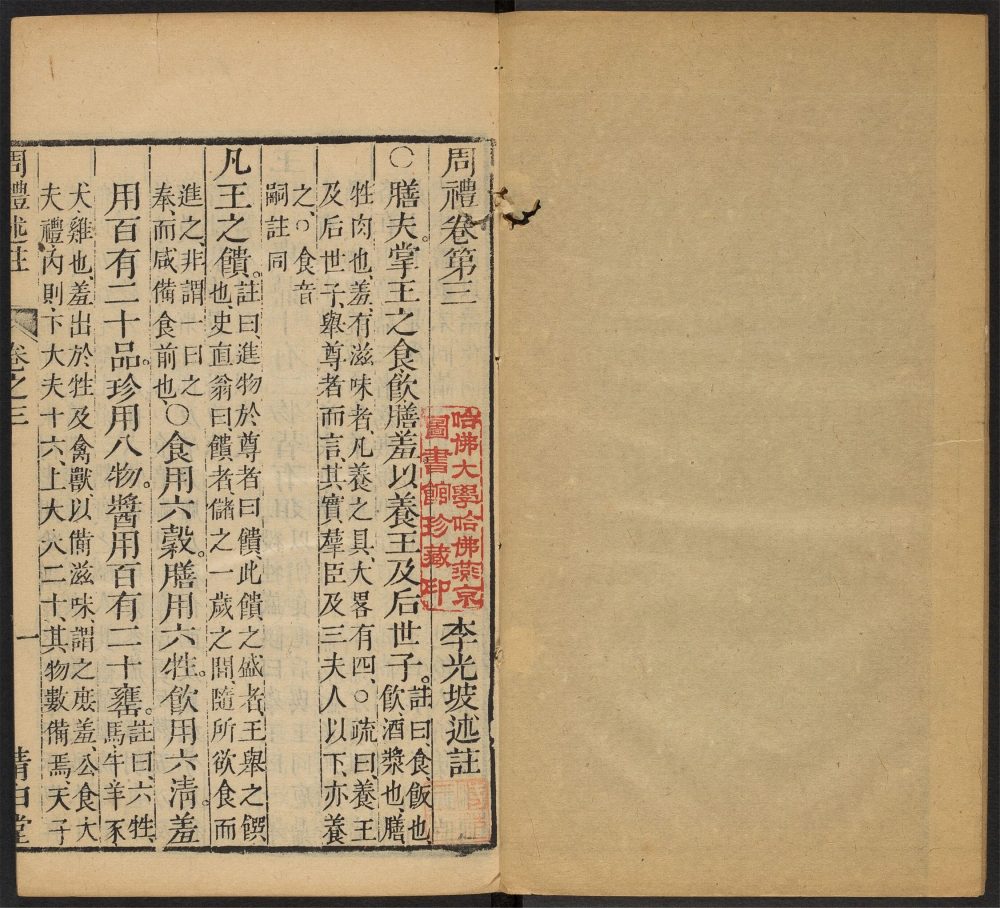 周禮卷第三
李光坡述註
哈佛大學哈佛燕京
圖書館珍藏印
○膳夫。掌王之食飲膳羞以養王及后世子。註曰、食飯也、
飲、酒漿也、膳、
牲肉也、羞、有滋味者、凡養之具、大畧有四、○疏曰、養王
及后世子、舉尊者而言、其實羣臣及三夫人以下、亦養
之、○食音
嗣註同
凡王之饋。註曰、進物於尊者曰饋、此饋之盛者、王舉之饌
也、史直翁曰、饋者、儲之一歲之間、隨所欲食而
進之、非謂一日之
奉、而咸備食前也、○食用六穀。膳用六牲。飲用六淸。羞
用百有二十品。珍用八物。醬用百有二十罋。註曰、六牲、
馬牛羊豕
犬雞也、羞出於牲及禽獸以備滋味、謂之庶羞、公食大
夫禮、內則、下大夫十六、上大夫二十、其物數備焉、天子
周禮述註
卷之三
一
淸白堂